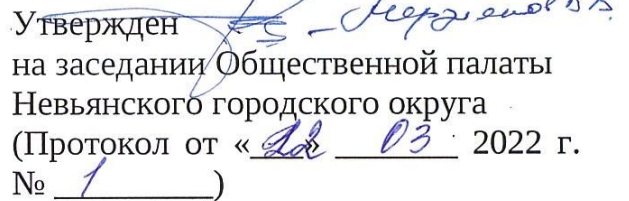 Утвержден
на заседании Общественной палаты
Невьянского городского округа
(Протокол от «22» 03 2022 г.
№ 1)